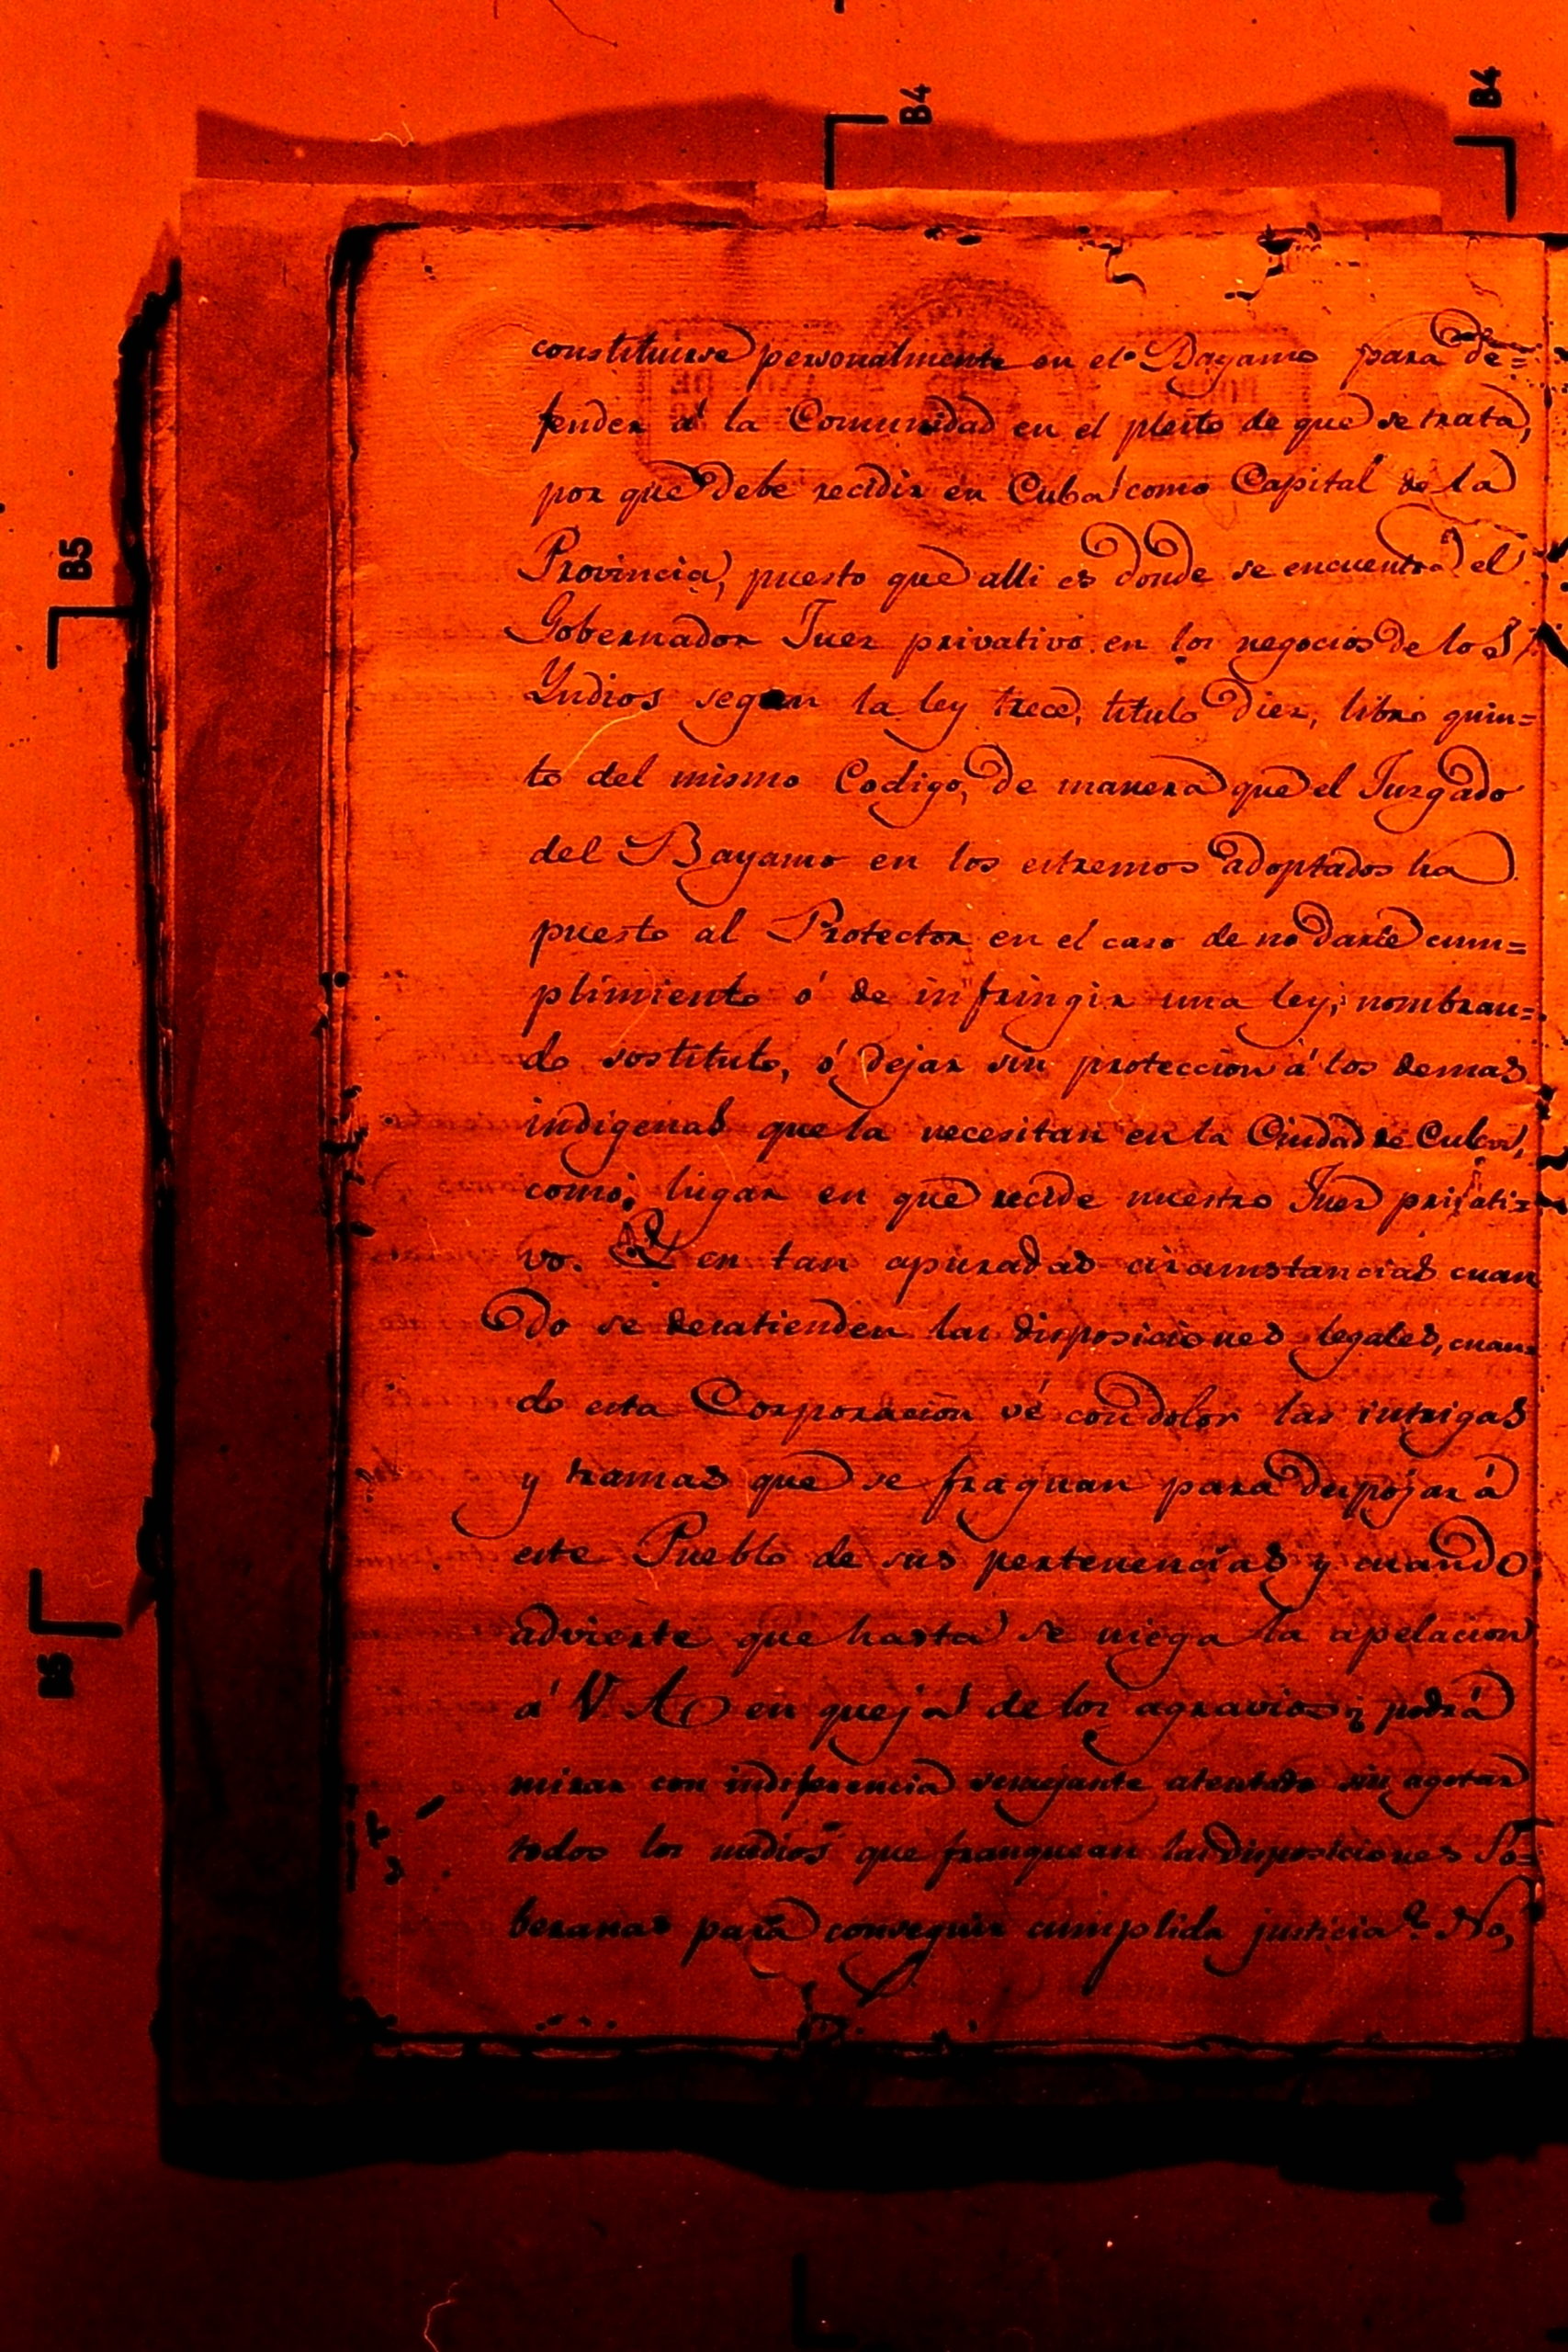 B4
B4
B5
B5
constituirse personalmente en el Bayamo para de=
fender á la Comunidad en el pleito de que se trata,
por que debe recidir en Cuba como Capital de la
Provincia, puesto que alli es donde se encuentra el
Gobernador Juez privativo en los negocios de los
Yndios segun la ley trece, titulo diez, libro quin=
to del mismo Codigo, de manera que el Juzgado
del Bayamo en los estremos adoptados ha
puesto al Protector en el caso de no darle cum=
plimiento ó de infringir una ley, nombran=
do sostituto, ó dejar sin proteccion á los demas
indigenas que la necesitan en la Ciudad de Cuba,
como lugar en que recide nuestro Juez privati=
vo. Y en tan apuradas circunstancias cuan
do se desatienden las disposiciones legales, cuan=
do esta Corporacion vé con dolor las intrigas
y tramas que se fraguan para despojar á
este Pueblo de sus pertenencias y cuando
advierte que hasta se niega la apelacion
á V. A. en queja de los agravios ¿podrá
mirar con indiferencia semejante atentado sin agotar
todos los medios que franquean las disposiciones So=
beranas para conseguir cumplida justicia? No,